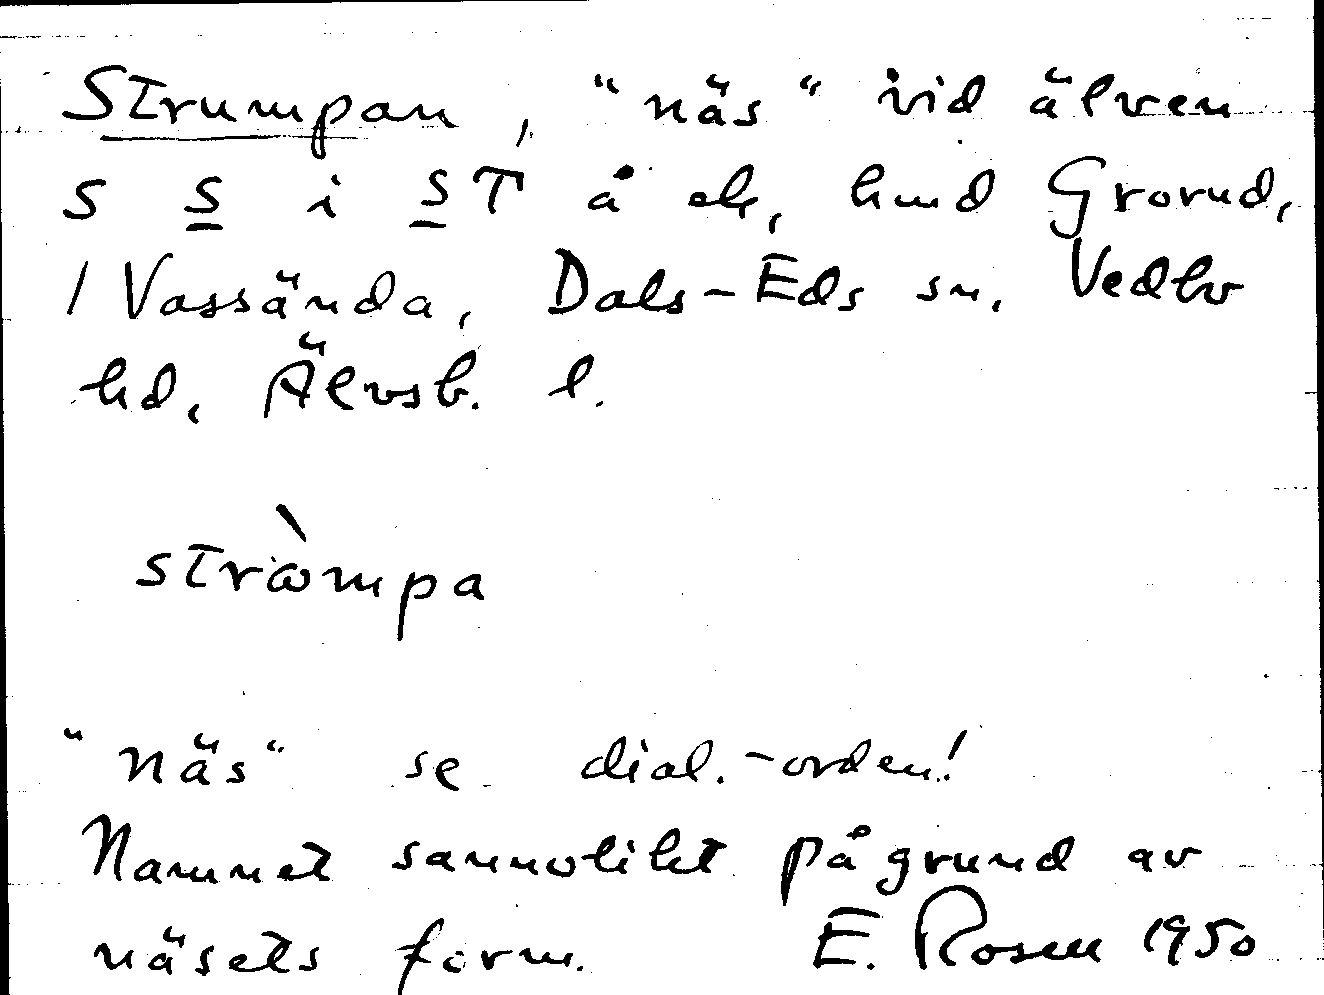 Strumpan, "näs" vid älven
S S i ST å ek, hmd Grorud,
/ Vassända, Dals-Eds sn. Vedbo
hd, Älvsb. l.
stròmpa
"näs" se dial.-orden!
Namnet sannolikt på grund av
näsets form. E. Rosen 1950